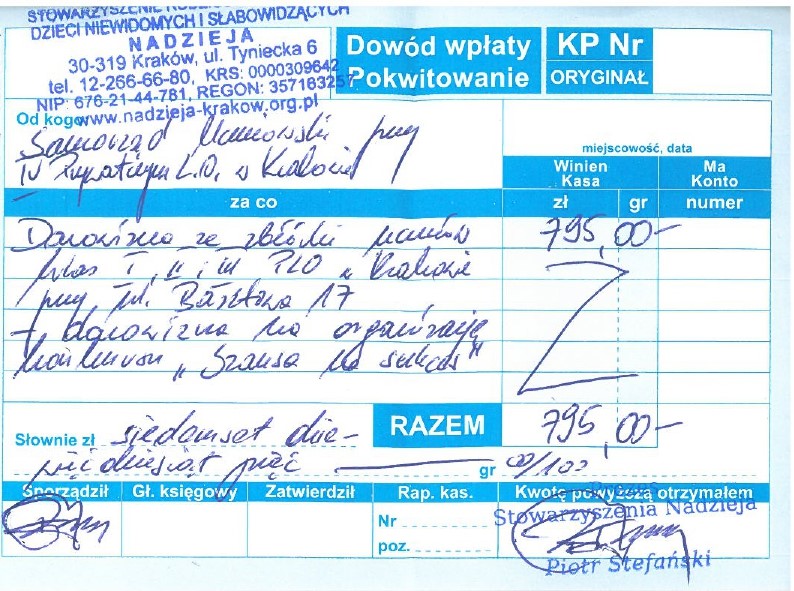 STOWARZYSZENIE
DZIECI NIEWIDOMYCH I SŁABOWIDZĄCYCH
NADZIEJA
30-319 Kraków, ul. Tyniecka 6
tel. 12-266-66-80, KRS: 0000309642
NIP: 676-21-44-781, REGON: 357183257
www.nadzieja-krakow.org.pl
Dowód wpłaty
Pokwitowanie
KP Nr
ORYGINAŁ
Od kogo
Samorząd Uczniowski przy
IV Prywatnym L.O. w Krakowie
miejscowość, data
Winien
Kasa
Ma
Konto
za co
zł gr
numer
Darowizna ze zbiórki uczniów
klas I, II i III PLO w Krakowie
przy ul. Basztowa 17
- darowizna na organizację
konkursu "Szansa na sukces"
795,00-
RAZEM
795,00-
Słownie zł siedemset dzie-
więćdziesiąt pięć gr 00/100
Sporządził
Gł. księgowy
Zatwierdził
Rap. kas.
Kwotę powyższą otrzymałem
Nr
poz.
Prezes
Stowarzyszenia Nadzieja
Piotr Stefański